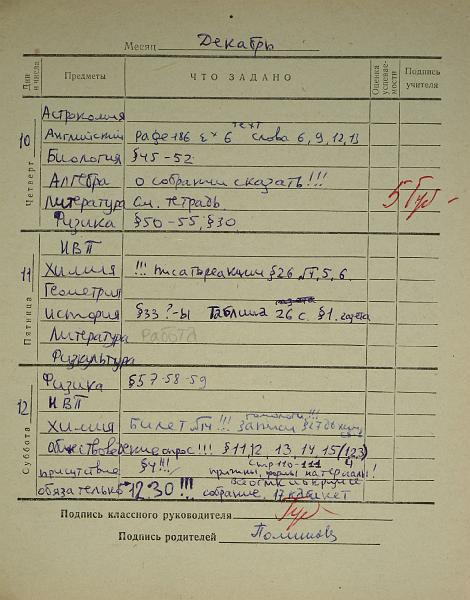 Месяц Декабрь
Дни и числа Предметы ЧТО ЗАДАНО Оценка успеваемости Подпись учителя
10 Четверг
Астрономия
Английский page 186 ex 6 текст слова 6, 9, 12, 13
Биология §45-52
Алгебра о собрании сказать!!!
Литература См. тетрадь 5
Физика §50-55, §30
11 Пятница
НВП
Химия !!! писать реакции §26 5, 6
Геометрия
История §33 ?-ы Таблица 26 с. §1. газета
Литература работа
Физкультура
12 Суббота
Физика §57-58-59
НВП
Химия Билет №4 !!! записи §27
Обществоведение опрос!!! §11, 12, 13, 14, 15 (1,2,3)
присутствие §4!!! стр 110-111 4
обязательно 12 30 !!! собрание, 17 кабинет
Подпись классного руководителя
Подпись родителей